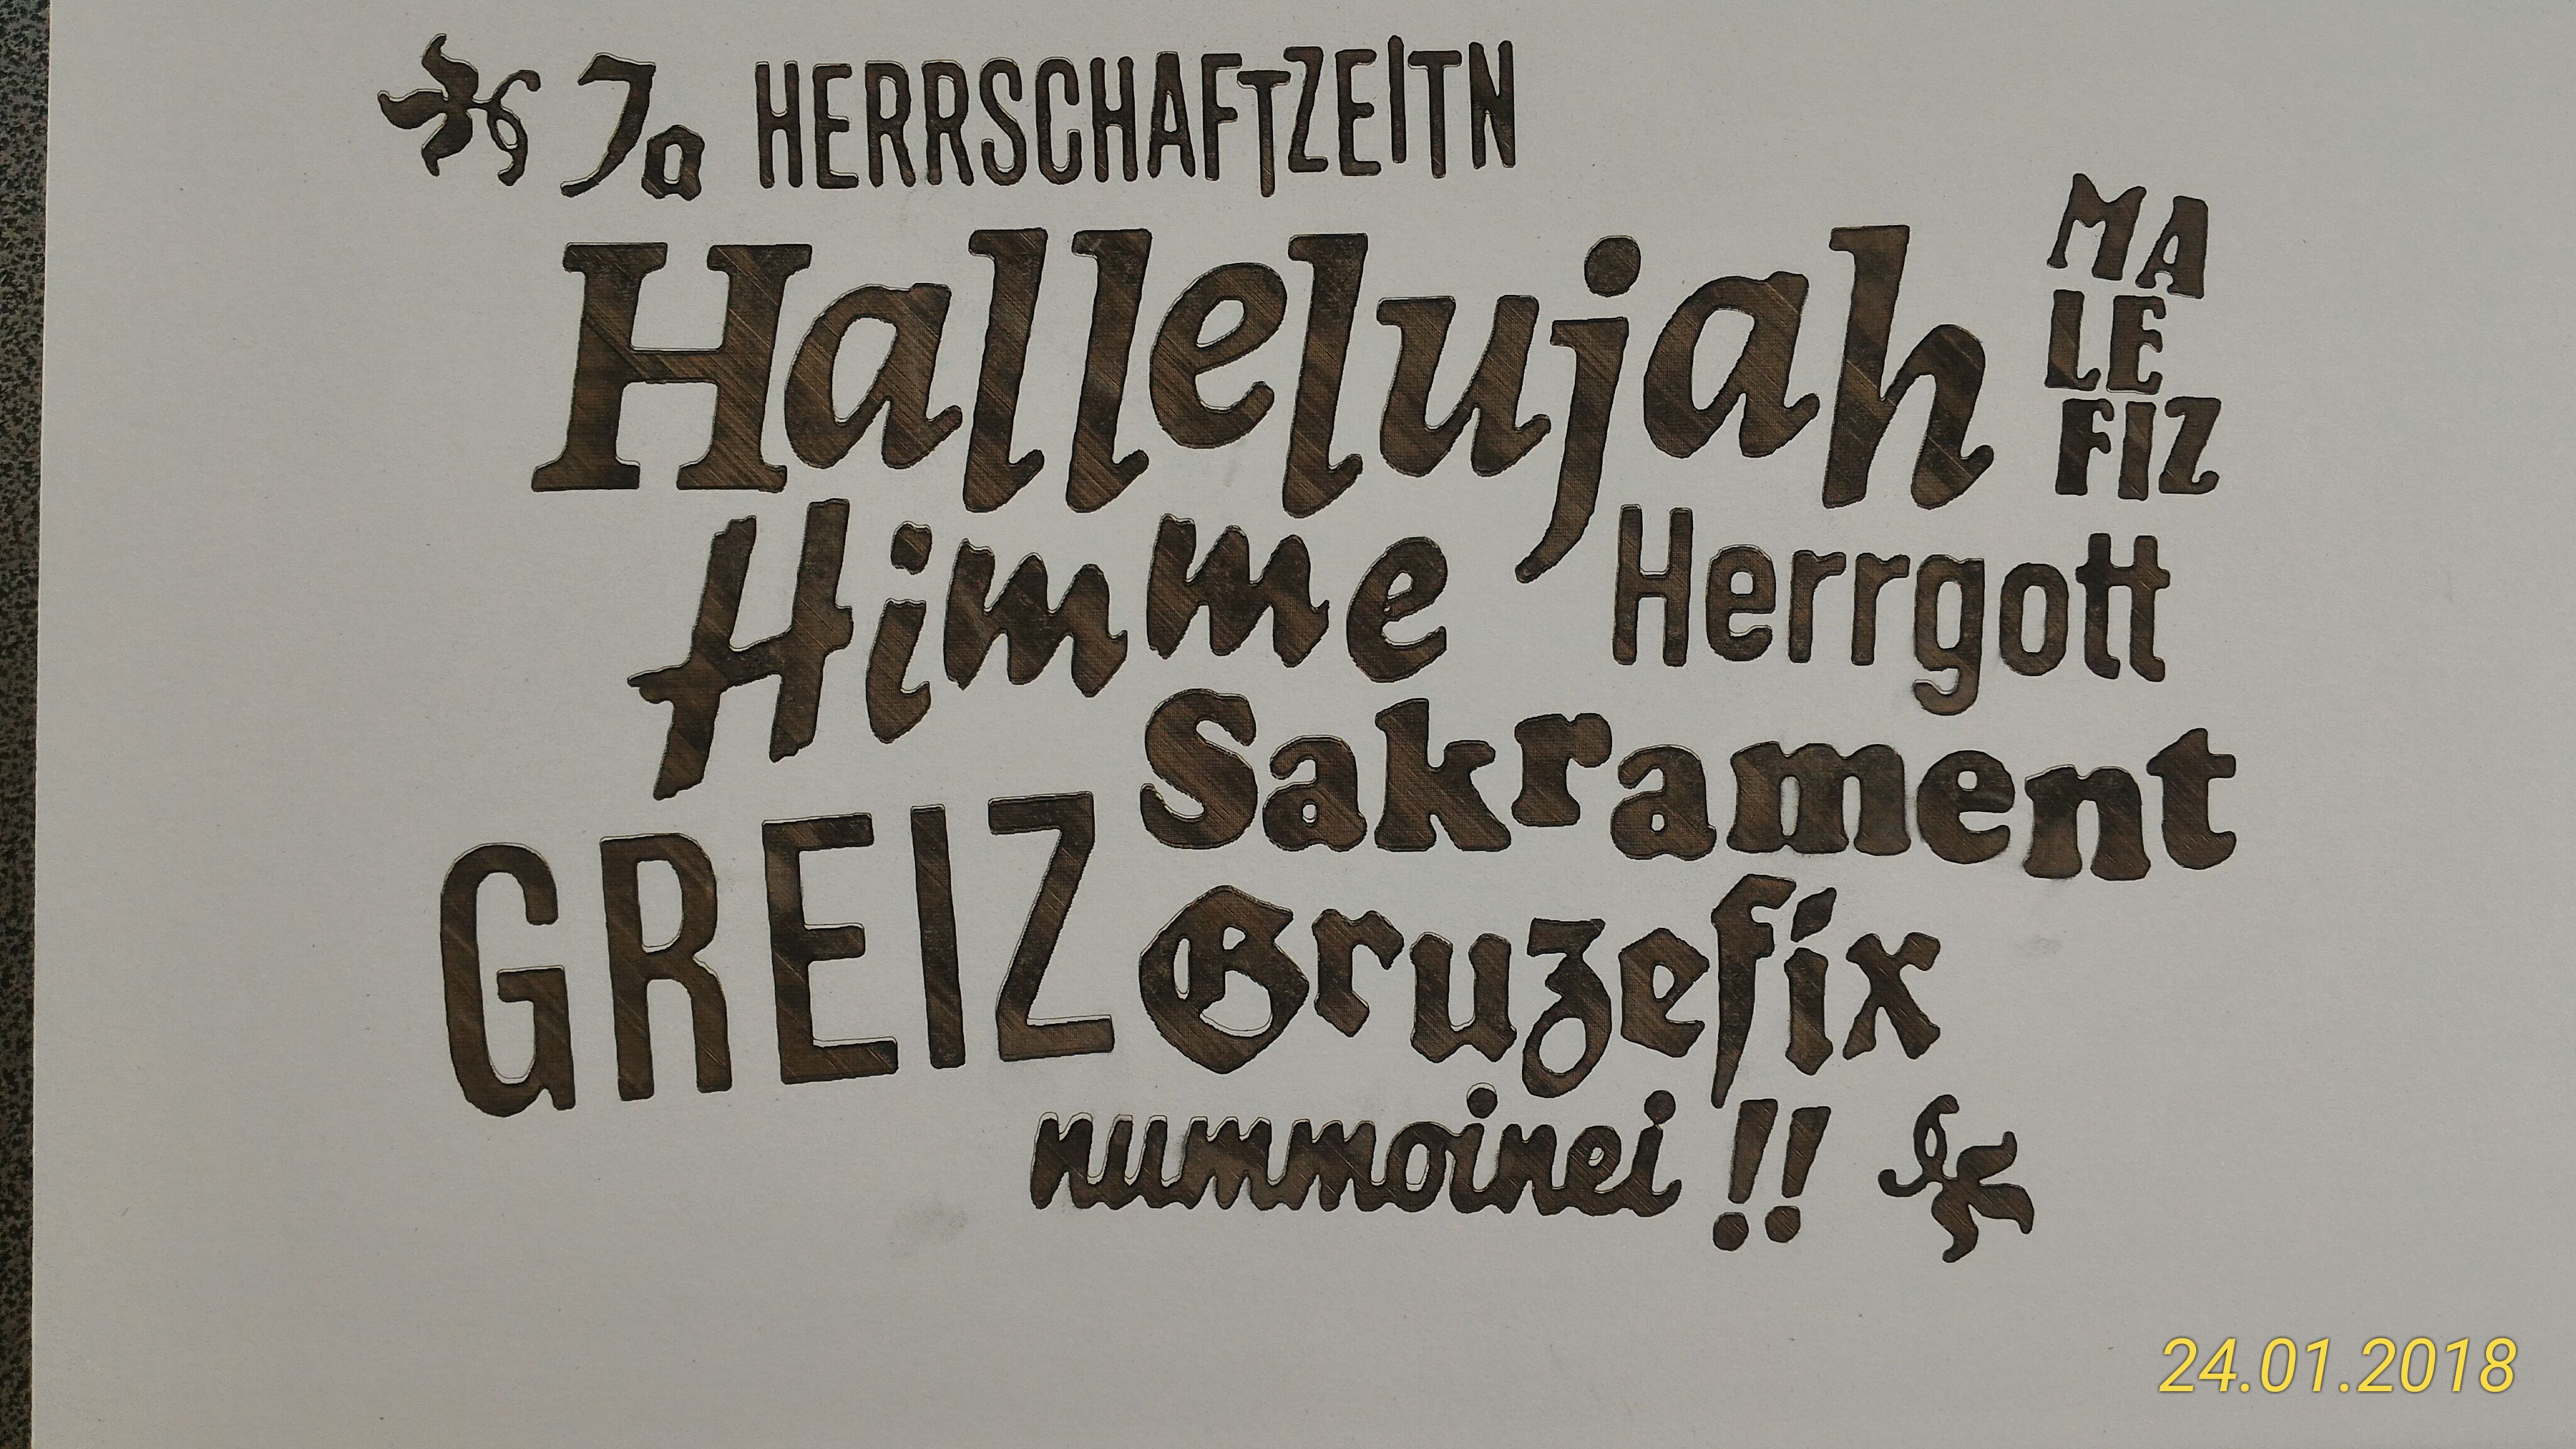 Ja HERRSCHAFTZEITN
Hallelujah
MA
LE
FIZ
Himme Herrgott
Sakrament
GREIZ Gruzefix
nummoinei !!
24.01.2018